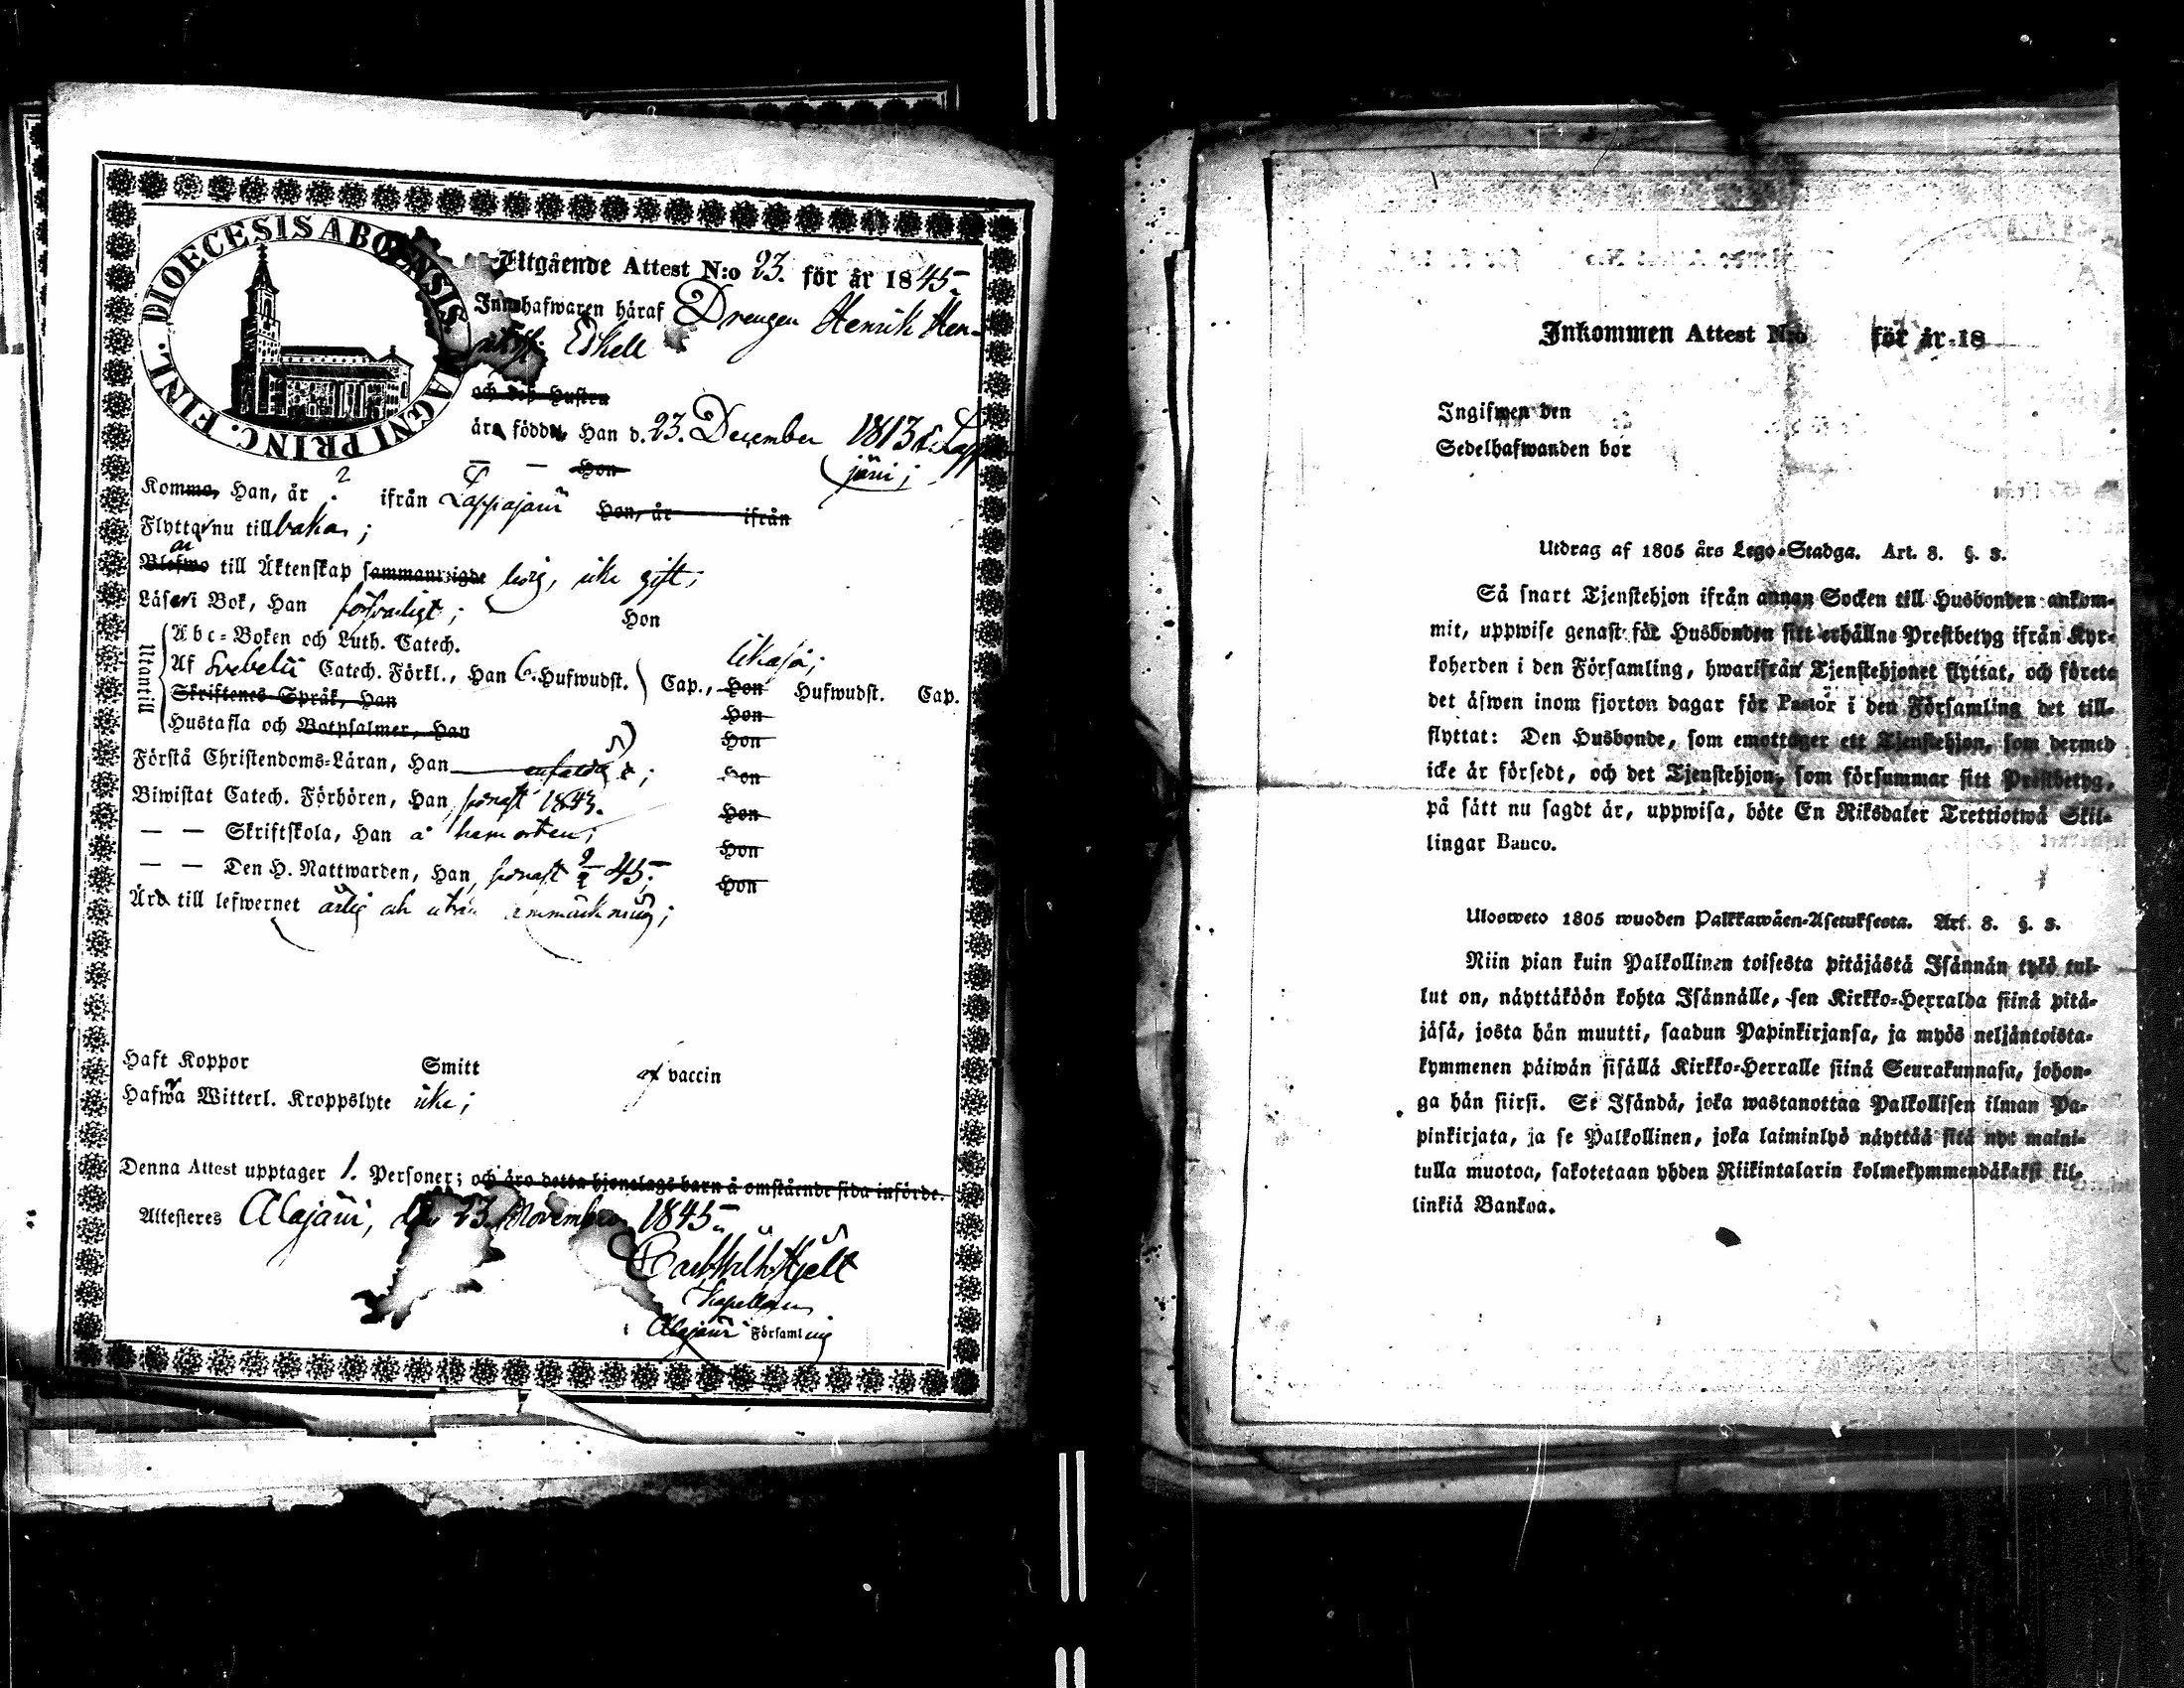 DIOECESIS ABOENSIS MAGNI PRINC. FINL.
Utgående Attest N:o 23. för år 1845.
Innehafwaren häraf Drengen Henrik Hen-
Eskell
och deß Hustru
äro födde, Han d. 23. December 1813 i Lappa
jäni;
— — Hon
Komme, Han, år ? ifrån Lappajärvi Hon, år ifrån
Flytta nu tillbaka;
ar
Blefwo till Äktenskap sammanwigde ledig, icke gift;
Läser i Bok, Han försvarligt; Hon
Utantill
Abc-Boken och Luth. Catech.
Af Svebelii Catech. Förkl., Han 6. Hufwudst. Cap., Hon likaså; Hufwudst. Cap.
Skriftenes Språk, Han Hon
Hustafla och Botpsalmer, Han Hon
Förstå Christendoms-Läran, Han enfaldigt; Hon
Biwistat Catech. Förhören, Han senast 1843. Hon
— — Skriftskola, Han å hemorten; Hon
— — Den H. Nattwarden, Han senast 45. Hon
Äro till lefwernet ärlig och utan anmärkning;
Haft Koppor Smitt af vaccin
Hafwa Witterl. Kroppslyte icke;
Denna Attest upptager 1. Personer; och äro detta hjonelags barn å omstående sida införde.
Attesteres Alajärvi, den 23 November 1845.
Carl Wilh. Hjelt
Kapellan
i Alajärvi Församling
Inkommen Attest N:o för år 18
Ingifwen den
Sedelhafwanden bor
Utdrag af 1805 års Lego-Stadga. Art. 8. §. 3.
Så snart Tjenstehjon ifrån annan Socken till Husbonden ankom-
mit, uppwise genast för Husbonden sitt erhållne Prestbetyg ifrån Kyr-
koherden i den Församling, hwarifrån Tjenstehjonet flyttat, och förete
det äfwen inom fjorton dagar för Pastor i den Församling det till-
flyttat: Den Husbonde, som emottager ett Tjenstehjon, som dermed
icke är försedt, och det Tjenstehjon, som försummar sitt Prestbetyg,
på sätt nu sagdt är, uppwisa, böte En Riksdaler Trettiotwå Skil-
lingar Banco.
Ulosweto 1805 wuoden Palkkawäen-Asetuksesta. Art. 8. §. 3.
Niin pian kuin Palkollinen toisesta pitäjästä Isännän tykö tul-
lut on, näyttäköön kohta Isännälle, sen Kirkko-Herralda siinä pitä-
jäsä, josta hän muutti, saadun Papinkirjansa, ja myös neljäntoista-
kymmenen päiwän sisällä Kirkko-Herralle siinä Seurakunnasa, johon-
ga hän siirsi. Se Isändä, joka wastanottaa Palkollisen ilman Pa-
pinkirjata, ja se Palkollinen, joka laiminlyö näyttää sitä nyt maini-
tulla muotoa, sakotetaan yhden Riikintalarin kolmekymmendäkaksi kil-
linkiä Bankoa.